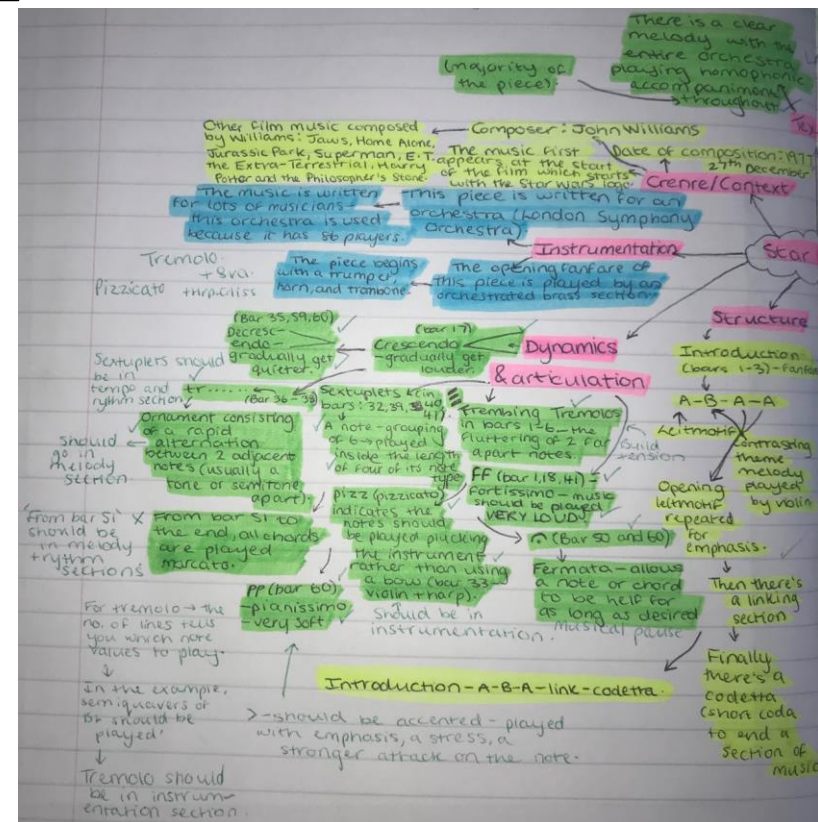 There is a clear
melody with the
entire orchestra
playing homophonic
accompaniment
throughout
(majority of
the piece).
Other film music composed
by Williams: Jaws, Home Alone,
Jurassic Park, Superman, E.T.
the Extra-Terrestrial, Harry
Potter and the Philosopher's Stone.
Composer: John Williams
The music first
appears at the start
of the film which starts
with the Star Wars logo.
Date of composition: 1977
27th December
Genre/Context
The music is written
for lots of musicians-
this orchestra is used
because it has 86 players.
This piece is written for an
orchestra (London Symphony
Orchestra).
Instrumentation
Star
Tremolo.
+ 8va.
Pizzicato + Hrp.Gliss
The piece begins
with a trumpet,
horn, and trombone.
The opening fanfare of
this piece is played by an
orchestrated brass section.
Structure
(Bar 35,59,60)
Decresc-
endo-
gradually get
quieter.
(bar 17)
Crescendo
-gradually get
louder.
Dynamics
& articulation
Introduction
(bars 1-3)-Fanfare
A-B-A-A
Leitmotif
Contrasting
theme
melody
played
by violin
Opening
leitmotif
repeated
for
emphasis.
Then there's
a linking
section
Finally
there's a
codetta
(short coda
to end a
section of
music
Sextuplets should
be in
tempo and
rythm section
tr......
(Bar 36-38)
Ornament consisting
of a rapid
alternation
between 2 adjacent
notes (usually a
tone or semitone
apart).
Should
go in
melody
section
Sextuplets (in
bars: 32,39, 40
41).
A note-grouping
of 6→played
inside the length
of four of its note
type
Trembling Tremolos
in bars 1-6-the
fluttering of 2 far
apart notes.
Build
tension
FF (bar 1,18,41)-
Fortissimo-music
should be played
VERY LOUD
'From bar 51' X
should be
in melody
+rythm
sections
From bar 51 to
the end, all chords
are played
marcato.
pizz (pizzicato)
indicates the
notes should
be played plucking
the instrument
rather than using
a bow (bar 33-
violin + harp).
Should be in
instrumentation.
(Bar 50 and 60)
Fermata-allows
a note or chord
to be helf for
as long as desired
Musical pause
pp (bar 60)
-pianissimo
-very soft
For tremolo→the
no. of lines tells
you which note
values to play.
In the example,
semiquavers or
should be
played'
Tremolo should
be in instrum-
entation section.
Introduction-A-B-A-link-codetta.
>-should be accented-played
with emphasis, a stress, a
stronger attack on the note.